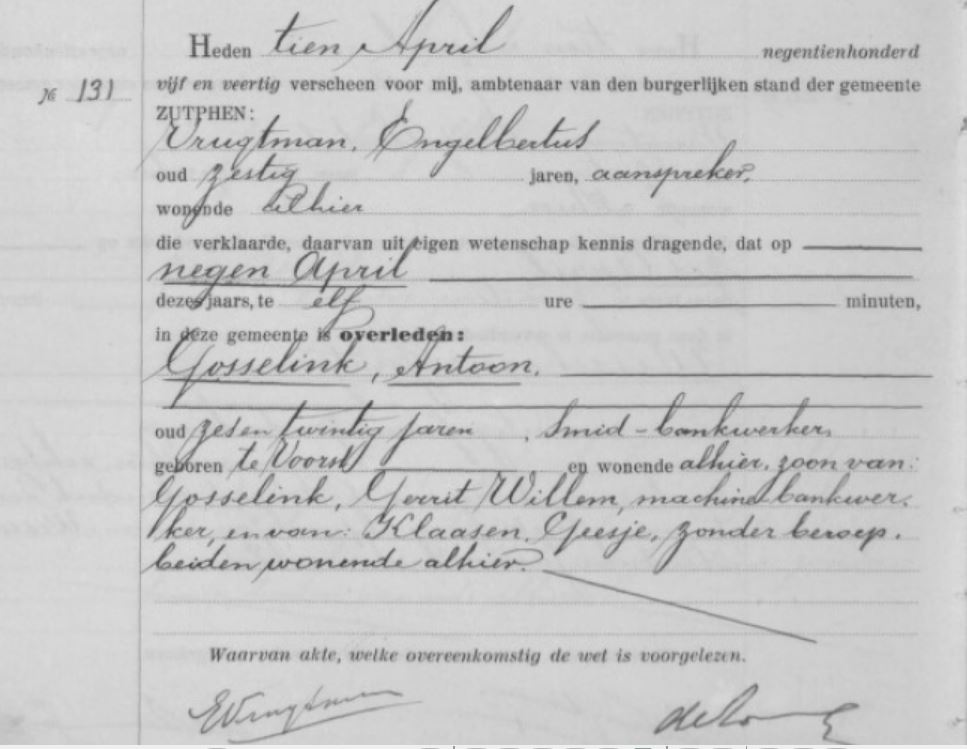 Heden tien April negentienhonderd
№ 131 vijf en veertig verscheen voor mij, ambtenaar van den burgerlijken stand der gemeente
ZUTPHEN:
Vrugtman, Engelbertus
oud zestig jaren, aanspreker,
wonende alhier
die verklaarde, daarvan uit eigen wetenschap kennis dragende, dat op
negen April
dezes jaars, te elf ure minuten,
in deze gemeente is overleden:
Gosselink, Antoon,
oud zes en twintig jaren, smid-bankwerker,
geboren te Voorst en wonende alhier, zoon van:
Gosselink, Gerrit Willem, machinebankwer-
ker, en van: Klaasen, Geesje, zonder beroep.
beiden wonende alhier.
Waarvan akte, welke overeenkomstig de wet is voorgelezen.
EVrugtman